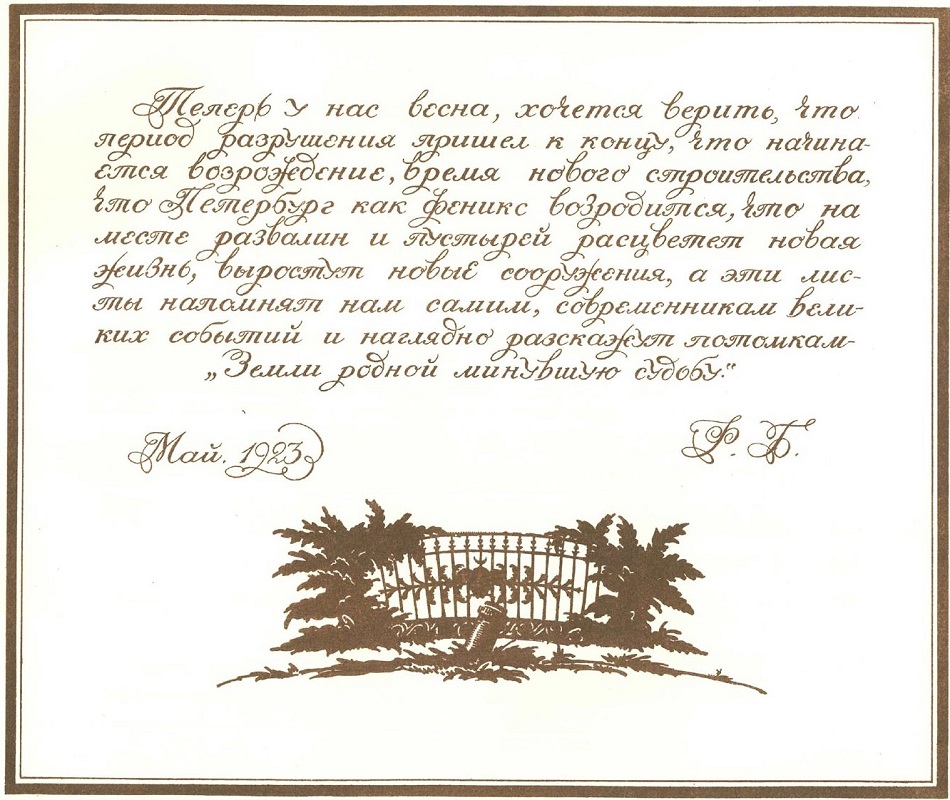 Теперь у нас весна, хочется верить, что
период разрушения пришел к концу, что начина-
ется возрождение, время нового строительства,
что Петербург как феникс возродится, что на
месте развалин и пустырей расцветет новая
жизнь, выростут новые сооружения, а эти лис-
ты напомнят нам самим, современникам вели-
ких событий и наглядно разскажут потомкам-
„Земли родной минувшую судьбу."
Май. 1923
Ф. Б.